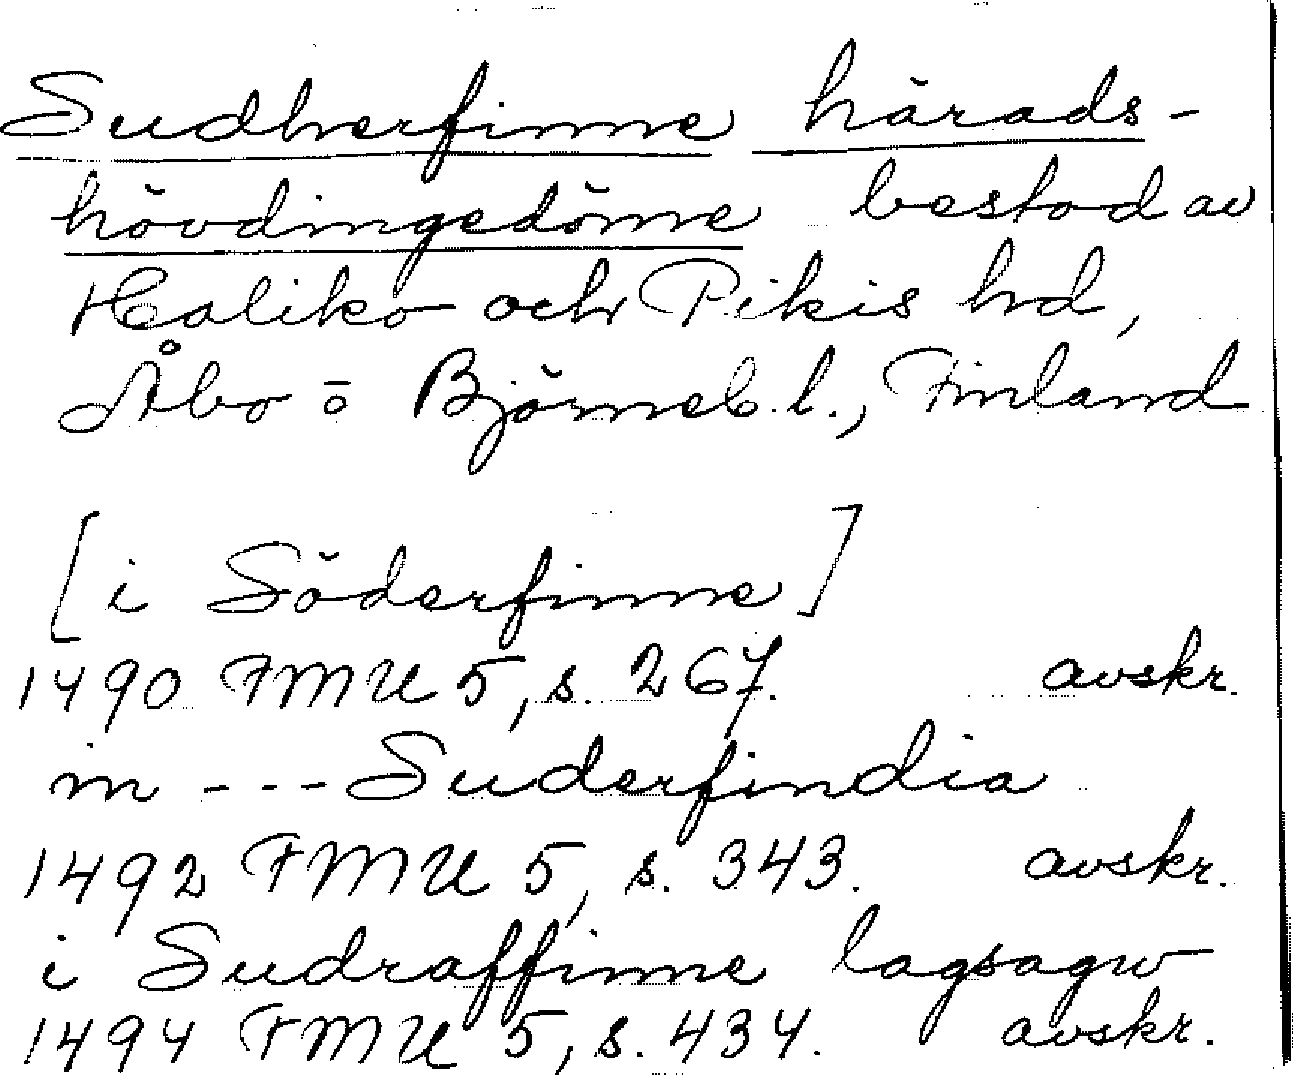 Sudherfinne härads-
hövdingedöme bestod av
Haliko och Pikis hd,
Åbo o Björneb. l., Finland
[i Söderfinne]
1490 FMU 5, s. 267. avskr.
in --- Suderfindia
1492 FMU 5, s. 343. avskr.
i Sudraffinne lagsagw
1494 FMU 5, s. 434. avskr.